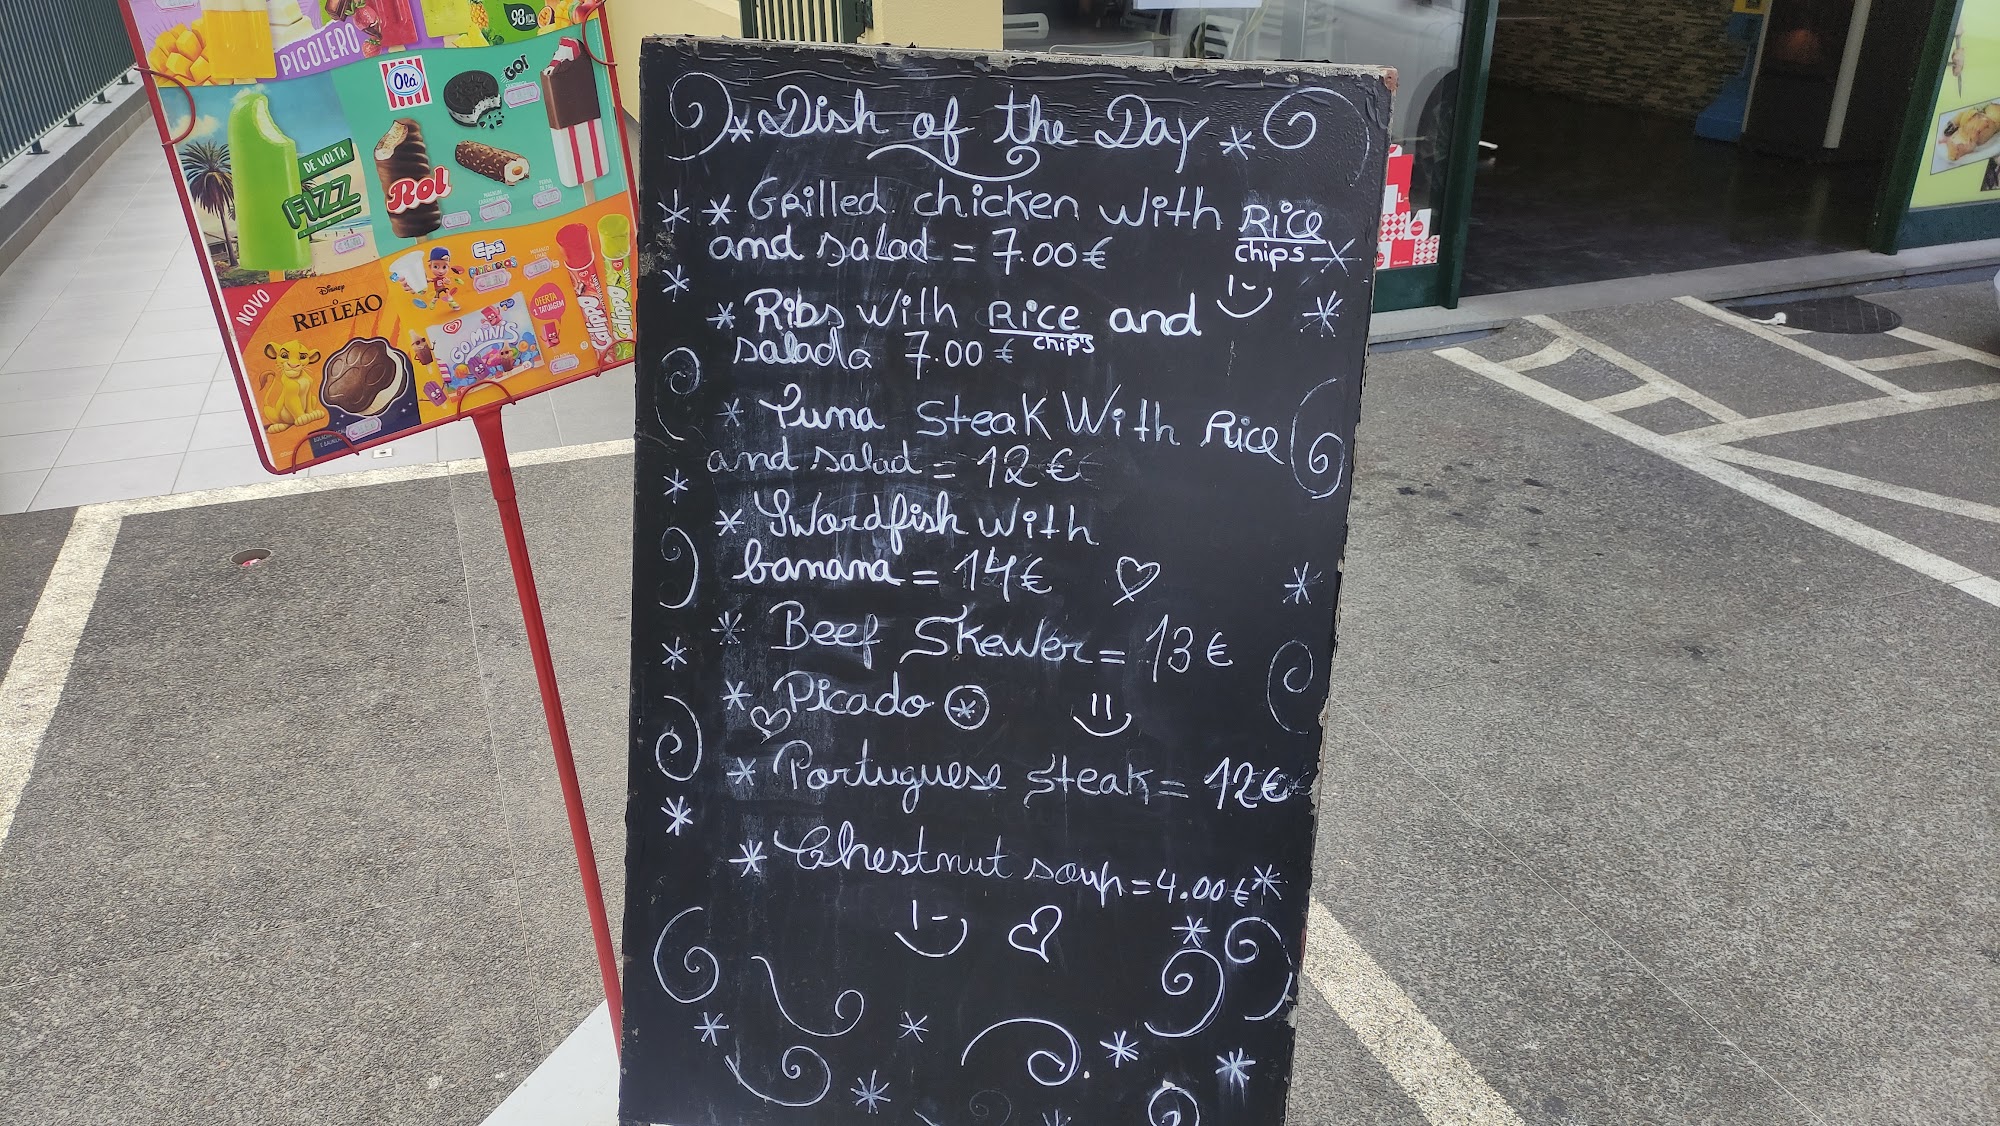 PICOLERO
98 KCAL
Olá
GO!
DE VOLTA
FIZZ
Rol
NOVO
Disney
O REI LEÃO
Eps
GO MINIS
OFERTA
1 TATUAGEM
Calippo
Calippo
Dish of the Day
Grilled chicken with Rice
chips
and salad = 7.00€
Ribs with Rice and
chip's
salada 7.00€
Tuna Steak With Rice
and salad = 12€
Swordfish with
banana = 14€
Beef Skewer = 13€
Picado
Portuguese steak = 12€
Chestnut soup = 4.00€